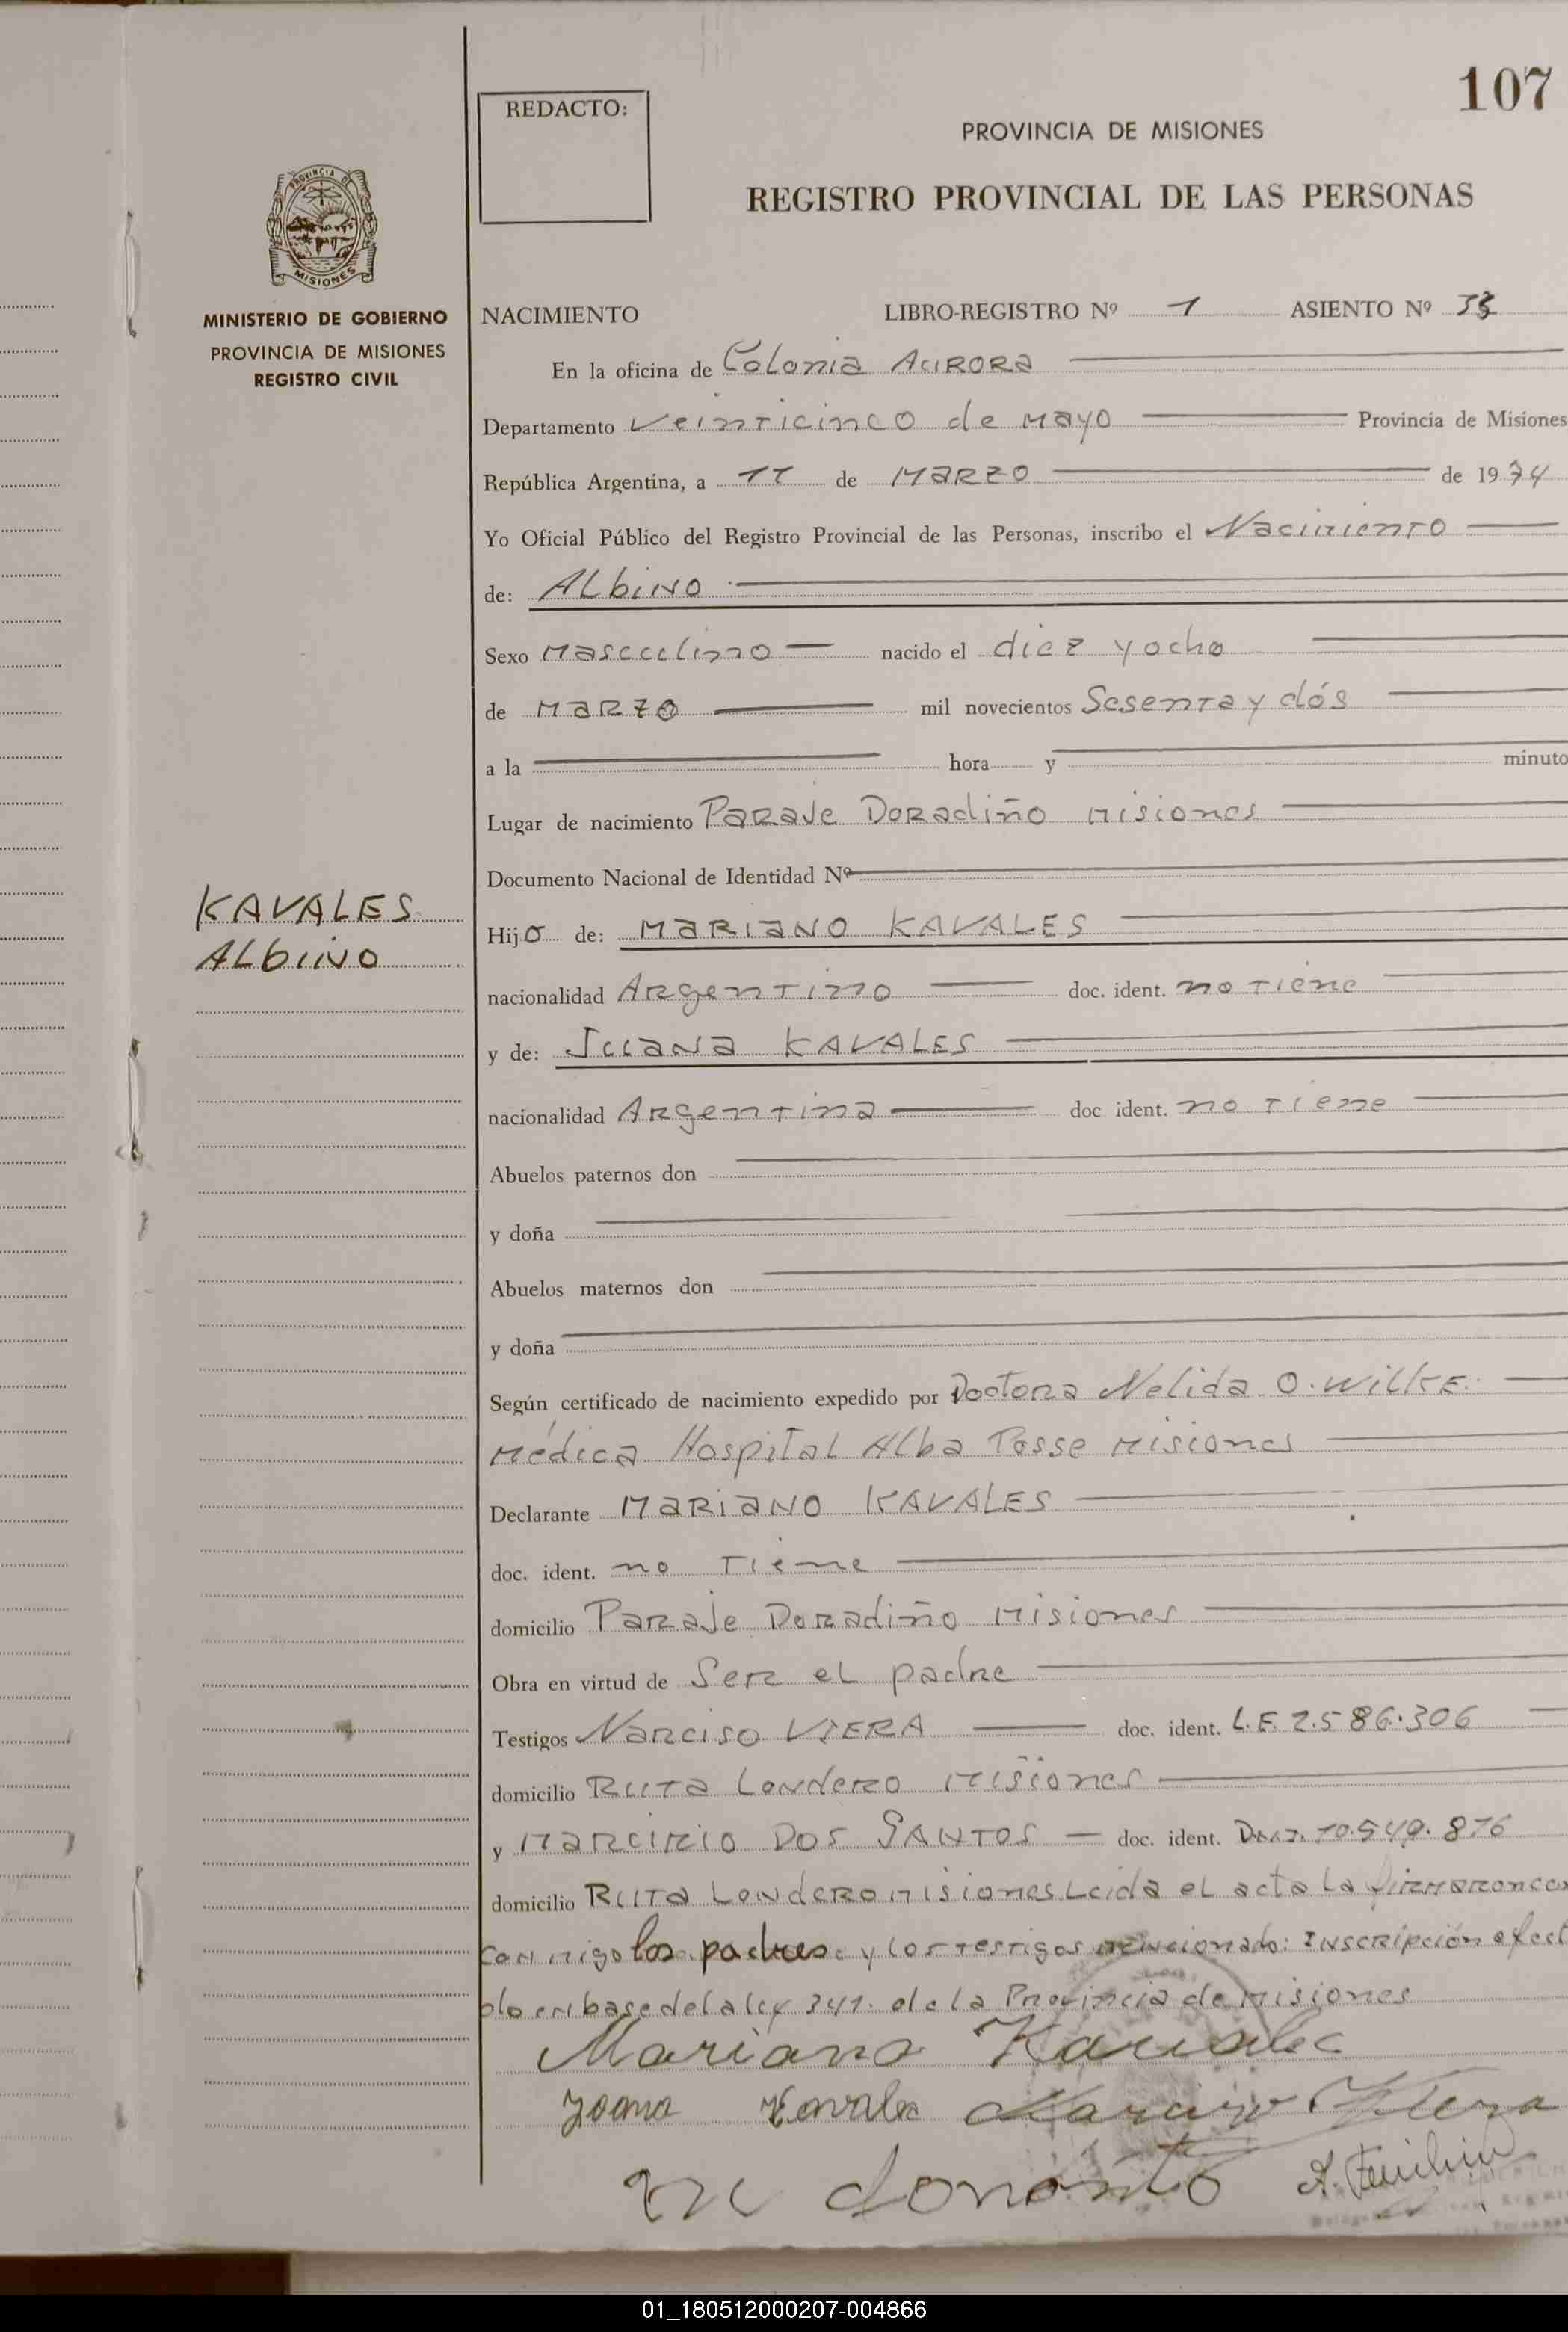 107
REDACTO:
PROVINCIA DE MISIONES
REGISTRO PROVINCIAL DE LAS PERSONAS
PROVINCIA DE
MISIONES
MINISTERIO DE GOBIERNO
PROVINCIA DE MISIONES
REGISTRO CIVIL
NACIMIENTO LIBRO-REGISTRO Nº 1 ASIENTO Nº 33
En la oficina de Colonia AURORA
Departamento Veinticinco de Mayo Provincia de Misiones
República Argentina, a 11 de MARZO de 1974
Yo Oficial Público del Registro Provincial de las Personas, inscribo el Nacimiento
de: ALbiNO
Sexo Masculino nacido el diez y ocho
de MARZO mil novecientos Sesenta y dós
a la hora y minuto
Lugar de nacimiento Paraje Doradiño Misiones
Documento Nacional de Identidad Nº
KAVALES
ALbiNO
Hijo de: MARIANO KAVALES
nacionalidad Argentino doc. ident. no tiene
y de: Juana KAVALES
nacionalidad Argentina doc ident. no tiene
Abuelos paternos don
y doña
Abuelos maternos don
y doña
Según certificado de nacimiento expedido por Doctora Nelida O. Wilke.
Médica Hospital Alba Posse Misiones
Declarante MARIANO KAVALES
doc. ident. no Tiene
domicilio Paraje Doradiño Misiones
Obra en virtud de Ser el padre
Testigos Narciso VIERA doc. ident. L.E. 2.586.306
domicilio Ruta Londero Misiones
y Marcirio DOS SANTOS doc. ident. D.N.I. 10.540.876
domicilio Ruta Londero Misiones Leida el acta la firmaron
conmigo los padres y los testigos mencionado: Inscripción efect
do en base de la ley 341. de la Provincia de Misiones
Mariano Kavales
Joana Kavales Narciso Viera